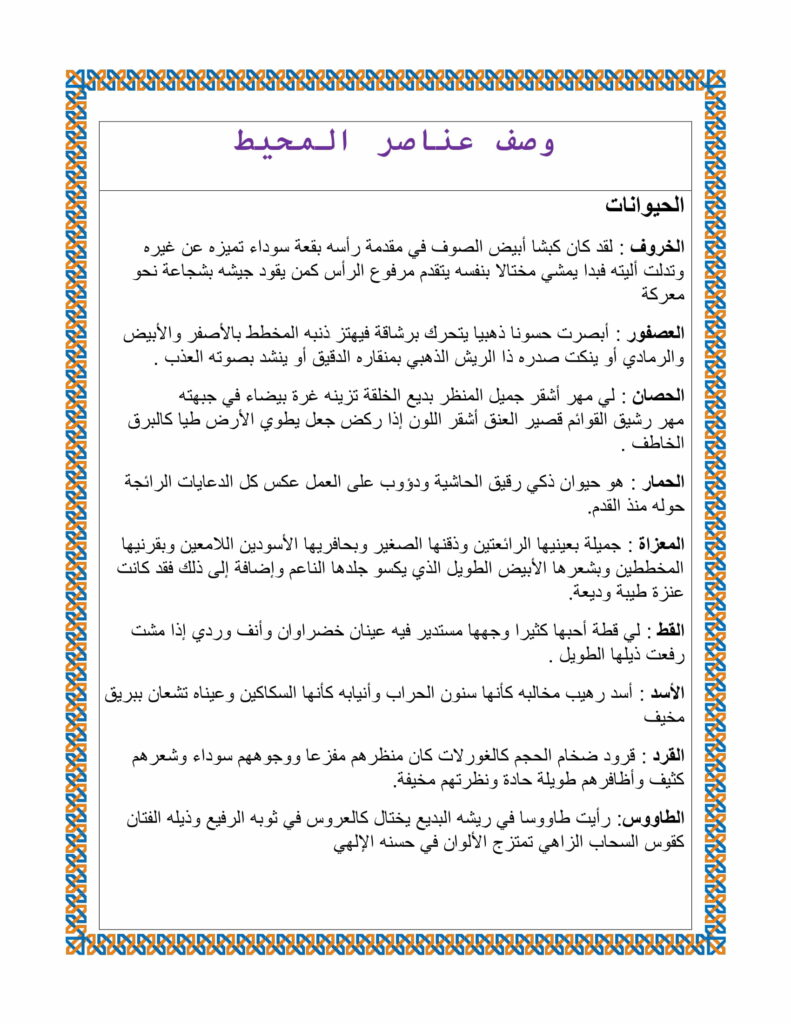 وصف عناصر المحيط
الحيوانات
الخروف : لقد كان كبشا أبيض الصوف في مقدمة رأسه بقعة سوداء تميزه عن غيره
وتدلت أليته فبدا يمشي مختالا بنفسه يتقدم مرفوع الرأس كمن يقود جيشه بشجاعة نحو
معركة
العصفور : أبصرت حسونا ذهبيا يتحرك برشاقة فيهتز ذنبه المخطط بالأصفر والأبيض
والرمادي أو ينكت صدره ذا الريش الذهبي بمنقاره الدقيق أو ينشد بصوته العذب .
الحصان : لي مهر أشقر جميل المنظر بديع الخلقة تزينه غرة بيضاء في جبهته
مهر رشيق القوائم قصير العنق أشقر اللون إذا ركض جعل يطوي الأرض طيا كالبرق
الخاطف .
الحمار : هو حيوان ذكي رقيق الحاشية ودؤوب على العمل عكس كل الدعايات الرائجة
حوله منذ القدم.
المعزاة : جميلة بعينيها الرائعتين وذقنها الصغير وبحافريها الأسودين اللامعين وبقرنيها
المخططين وبشعرها الأبيض الطويل الذي يكسو جلدها الناعم وإضافة إلى ذلك فقد كانت
عنزة طيبة وديعة.
القط : لي قطة أحبها كثيرا وجهها مستدير فيه عينان خضراوان وأنف وردي إذا مشت
رفعت ذيلها الطويل .
الأسد : أسد رهيب مخالبه كأنها سنون الحراب وأنيابه كأنها السكاكين وعيناه تشعان ببريق
مخيف
القرد : قرود ضخام الحجم كالغورلات كان منظرهم مفزعا ووجوههم سوداء وشعرهم
كثيف وأظافرهم طويلة حادة ونظرتهم مخيفة.
الطاووس: رأيت طاووسا في ريشه البديع يختال كالعروس في ثوبه الرفيع وذيله الفتان
كقوس السحاب الزاهي تمتزج الألوان في حسنه الإلهي